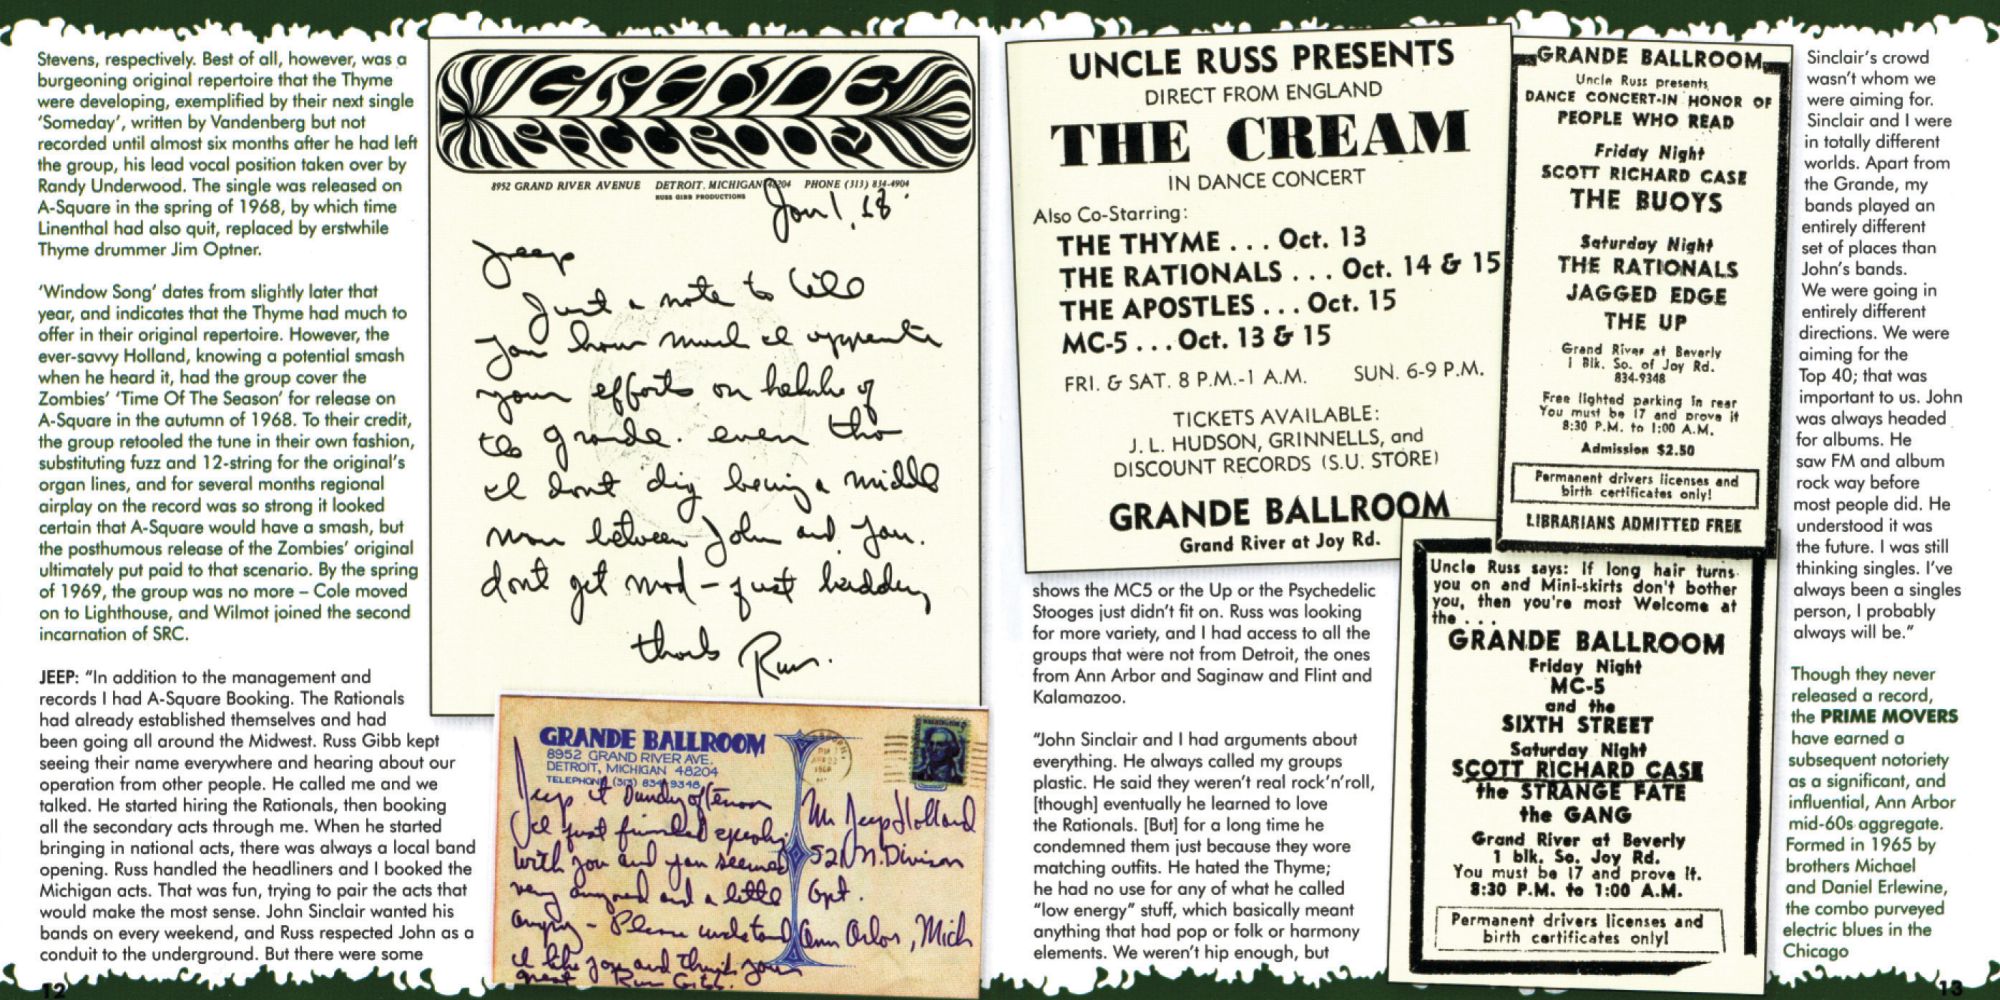 Stevens, respectively. Best of all, however, was a
burgeoning original repertoire that the Thyme
were developing, exemplified by their next single
‘Someday’, written by Vandenberg but not
recorded until almost six months after he had left
the group, his lead vocal position taken over by
Randy Underwood. The single was released on
A-Square in the spring of 1968, by which time
Linenthal had also quit, replaced by erstwhile
Thyme drummer Jim Optner.
‘Window Song’ dates from slightly later that
year, and indicates that the Thyme had much to
offer in their original repertoire. However, the
ever-savvy Holland, knowing a potential smash
when he heard it, had the group cover the
Zombies’ ‘Time Of The Season’ for release on
A-Square in the autumn of 1968. To their credit,
the group retooled the tune in their own fashion,
substituting fuzz and 12-string for the original’s
organ lines, and for several months regional
airplay on the record was so strong it looked
certain that A-Square would have a smash, but
the posthumous release of the Zombies’ original
ultimately put paid to that scenario. By the spring
of 1969, the group was no more – Cole moved
on to Lighthouse, and Wilmot joined the second
incarnation of SRC.
JEEP: “In addition to the management and
records I had A-Square Booking. The Rationals
had already established themselves and had
been going all around the Midwest. Russ Gibb kept
seeing their name everywhere and hearing about our
operation from other people. He called me and we
talked. He started hiring the Rationals, then booking
all the secondary acts through me. When he started
bringing in national acts, there was always a local band
opening. Russ handled the headliners and I booked the
Michigan acts. That was fun, trying to pair the acts that
would make the most sense. John Sinclair wanted his
bands on every weekend, and Russ respected John as a
conduit to the underground. But there were some
12
GRANDE
BALLROOM
8952 GRAND RIVER AVENUE DETROIT, MICHIGAN 48204 PHONE (313) 834-4904
RUSS GIBB PRODUCTIONS
Jan 1, 68
Jeep
Just a note to tell
you how much I appreciate
your efforts on behalf of
the grande. even tho
I dont dig being a middle
man between John and you.
dont get mad – just kidding
thanks Russ.
GRANDE BALLROOM
8952 GRAND RIVER AVE.
DETROIT, MICHIGAN 48204
TELEPHONE (313) 834-9348
Jeep it Sunday afternoon
I just finished speaking
with you and you seemed
very annoyed and a little
angry – Please understand
I like you and think your
great Russ Gibb.
Mr Jeep Holland
521 N. Division
Apt.
Ann Arbor, Mich
UNCLE RUSS PRESENTS
DIRECT FROM ENGLAND
THE CREAM
IN DANCE CONCERT
Also Co-Starring:
THE THYME . . . Oct. 13
THE RATIONALS . . . Oct. 14 & 15
THE APOSTLES . . . Oct. 15
MC-5 . . . Oct. 13 & 15
FRI. & SAT. 8 P.M.-1 A.M. SUN. 6-9 P.M.
TICKETS AVAILABLE:
J. L. HUDSON, GRINNELLS, and
DISCOUNT RECORDS (S.U. STORE)
GRANDE BALLROOM
Grand River at Joy Rd.
shows the MC5 or the Up or the Psychedelic
Stooges just didn’t fit on. Russ was looking
for more variety, and I had access to all the
groups that were not from Detroit, the ones
from Ann Arbor and Saginaw and Flint and
Kalamazoo.
“John Sinclair and I had arguments about
everything. He always called my groups
plastic. He said they weren’t real rock’n’roll,
[though] eventually he learned to love
the Rationals. [But] for a long time he
condemned them just because they wore
matching outfits. He hated the Thyme;
he had no use for any of what he called
“low energy” stuff, which basically meant
anything that had pop or folk or harmony
elements. We weren’t hip enough, but
GRANDE BALLROOM
Uncle Russ presents
DANCE CONCERT-IN HONOR OF
PEOPLE WHO READ
Friday Night
SCOTT RICHARD CASE
THE BUOYS
Saturday Night
THE RATIONALS
JAGGED EDGE
THE UP
Grand River at Beverly
1 Blk. So. of Joy Rd.
834-9348
Free lighted parking in rear
You must be 17 and prove it
8:30 P.M. to 1:00 A.M.
Admission $2.50
Permanent drivers licenses and
birth certificates only!
LIBRARIANS ADMITTED FREE
Uncle Russ says: If long hair turns
you on and Mini-skirts don't bother
you, then you're most Welcome at
the . . .
GRANDE BALLROOM
Friday Night
MC-5
and the
SIXTH STREET
Saturday Night
SCOTT RICHARD CASE
the STRANGE FATE
the GANG
Grand River at Beverly
1 blk. So. Joy Rd.
You must be 17 and prove it.
8:30 P.M. to 1:00 A.M.
Permanent drivers licenses and
birth certificates only!
Sinclair’s crowd
wasn’t whom we
were aiming for.
Sinclair and I were
in totally different
worlds. Apart from
the Grande, my
bands played an
entirely different
set of places than
John’s bands.
We were going in
entirely different
directions. We were
aiming for the
Top 40; that was
important to us. John
was always headed
for albums. He
saw FM and album
rock way before
most people did. He
understood it was
the future. I was still
thinking singles. I’ve
always been a singles
person, I probably
always will be.”
Though they never
released a record,
the PRIME MOVERS
have earned a
subsequent notoriety
as a significant, and
influential, Ann Arbor
mid-60s aggregate.
Formed in 1965 by
brothers Michael
and Daniel Erlewine,
the combo purveyed
electric blues in the
Chicago
13